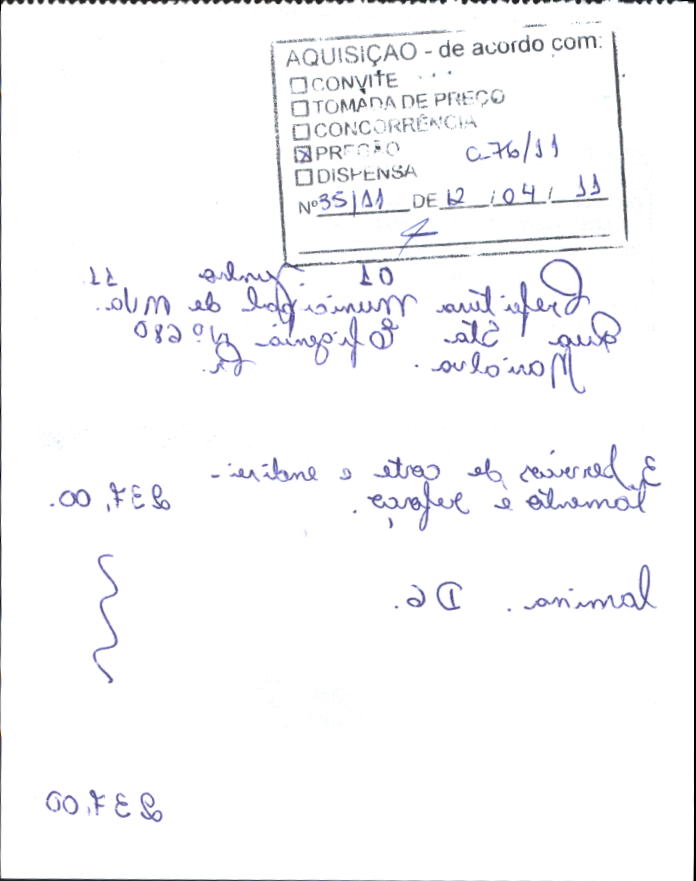 AQUISIÇAO - de acordo com:
CONVITE
TOMADA DE PREÇO
CONCORRÊNCIA
PREGÃO C-76/11
DISPENSA
Nº 35/11 DE 12 / 04 / 11
01 Junho 11
Prefeitura Municipal de Mva.
Rua Sta Efigenia Nº 680
Marialva. Pr.
3 servicos de corte e endirei-
tamento e reforço. 237,00.
lamina. D6.
237,00